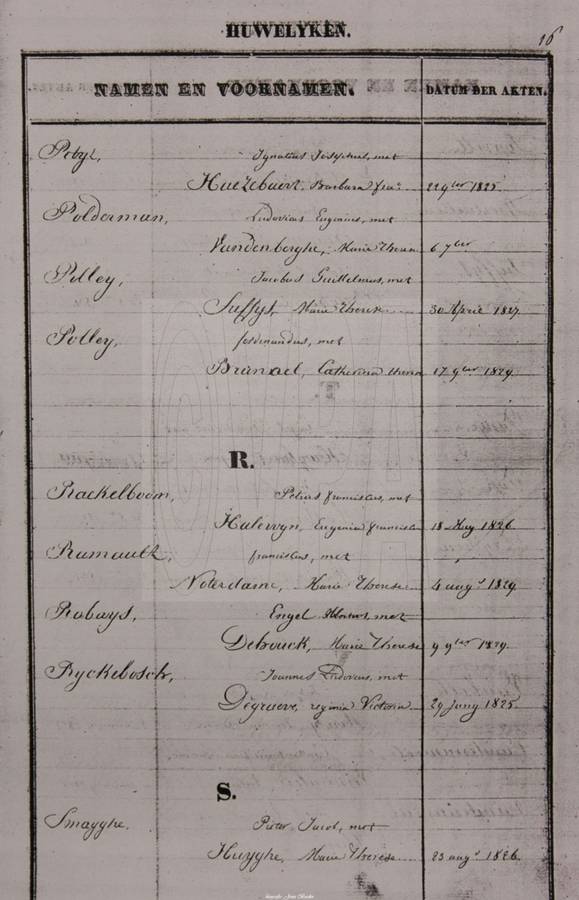 HUWELYKEN.
16
NAMEN EN VOORNAMEN. DATUM DER AKTEN.
Petyt, Ignatius Josephus, met
Huezebaert, Barbara 22 9ber 1825.
Polderman, Ludovicus Eugenius, met
Vandenberghe, Marie Therese 6 7ber
Polley, Jacobus Guillelmus, met
Suffys, Marie Therese 30 April 1827.
Polley, ferdinandus, met
Bruneel, Catherina 17 9ber 1829.
R.
Rackelboom, Petrus franciscus, met
Halewyn, Eugenia francisca 18 Aug 1826
Ramault, franciscus, met
Noterdame, Marie Therese 4 augt 1829
Rabays, Engel met
Debrouck, Marie Therese 9 9ber 1829.
Ryckebosch, Joannes Ludovicus, met
Degraeve, regina Victoria 29 juny 1825.
S.
Smagghe. Pieter Jacob, met
Huyghe, Marie Therese 23 augt 1826.